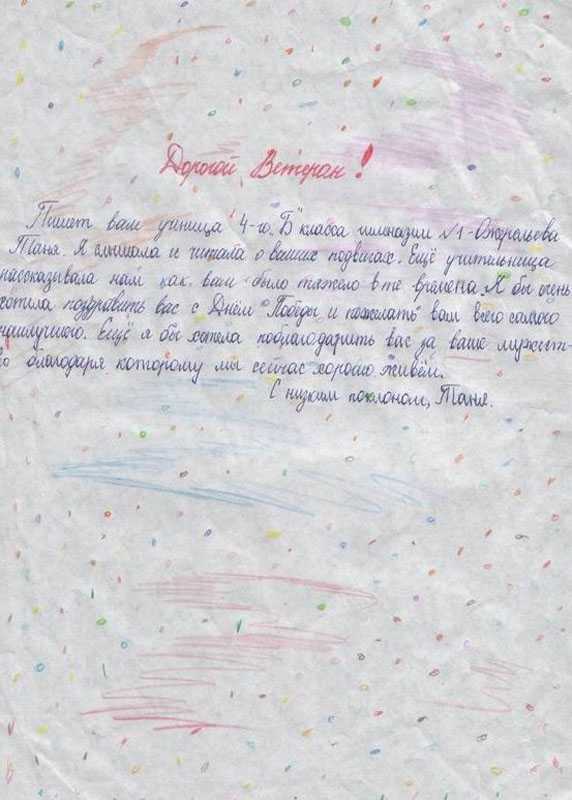 Дорогой Ветеран!
Пишет вам ученица 4-го "Б" класса гимназии №1 -
Таня. Я слышала и читала о ваших подвигах. Ещё учительница
рассказывала нам как вам было тяжело в те времена. Я бы очень
хотела поздравить вас с Днём Победы и пожелать вам всего самого
наилучшего. Ещё я бы хотела поблагодарить вас за ваше мужест-
во благодаря которому мы сейчас хорошо живём.
С низким поклоном, Таня.